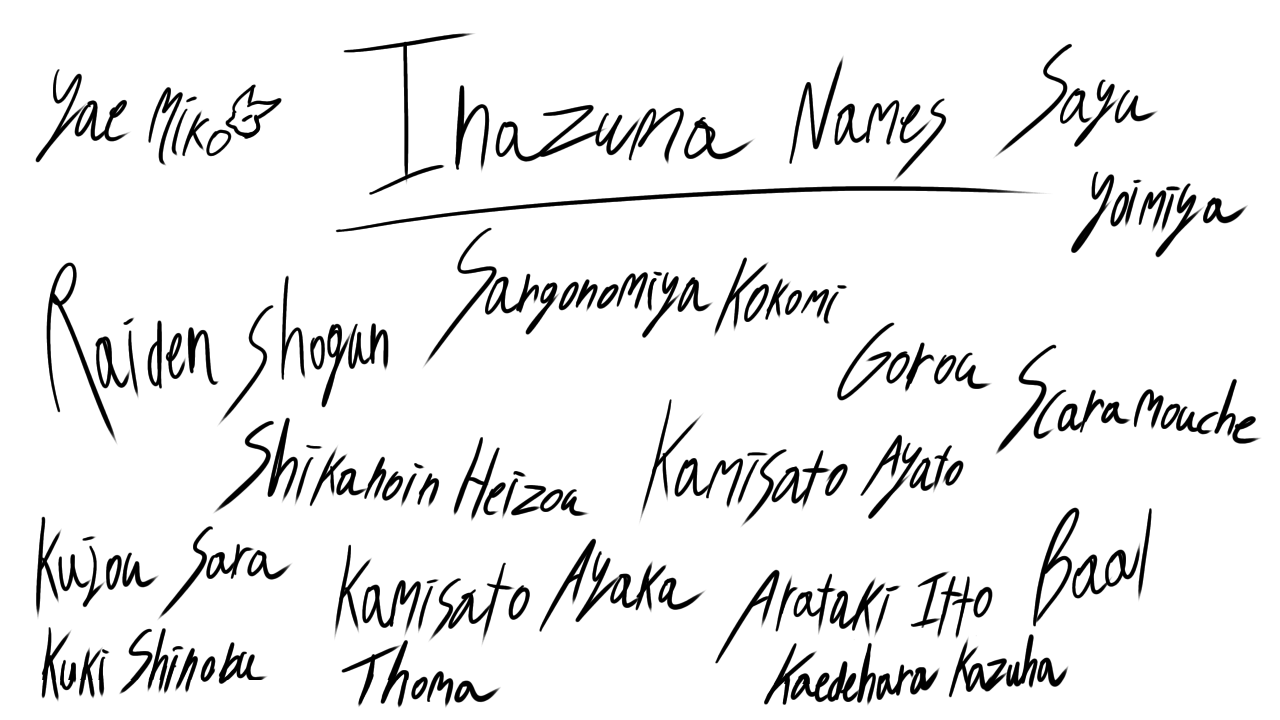 Yae Miko
Inazuma Names
Sayu
Yoimiya
Sangonomiya Kokomi
Raiden Shogun
Gorou
Scaramouche
Shikanoin Heizou
Kamisato Ayato
Kujou Sara
Kamisato Ayaka
Arataki Itto
Baal
Kuki Shinobu
Thoma
Kaedehara Kazuha